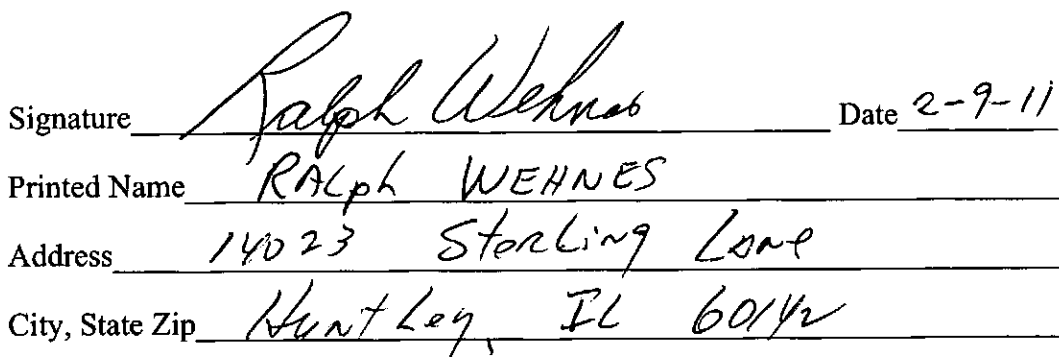 Signature Ralph Wehnes Date 2-9-11
Printed Name RALph WEHNES
Address 14023 Sterling Lane
City, State Zip Huntley, IL 60142